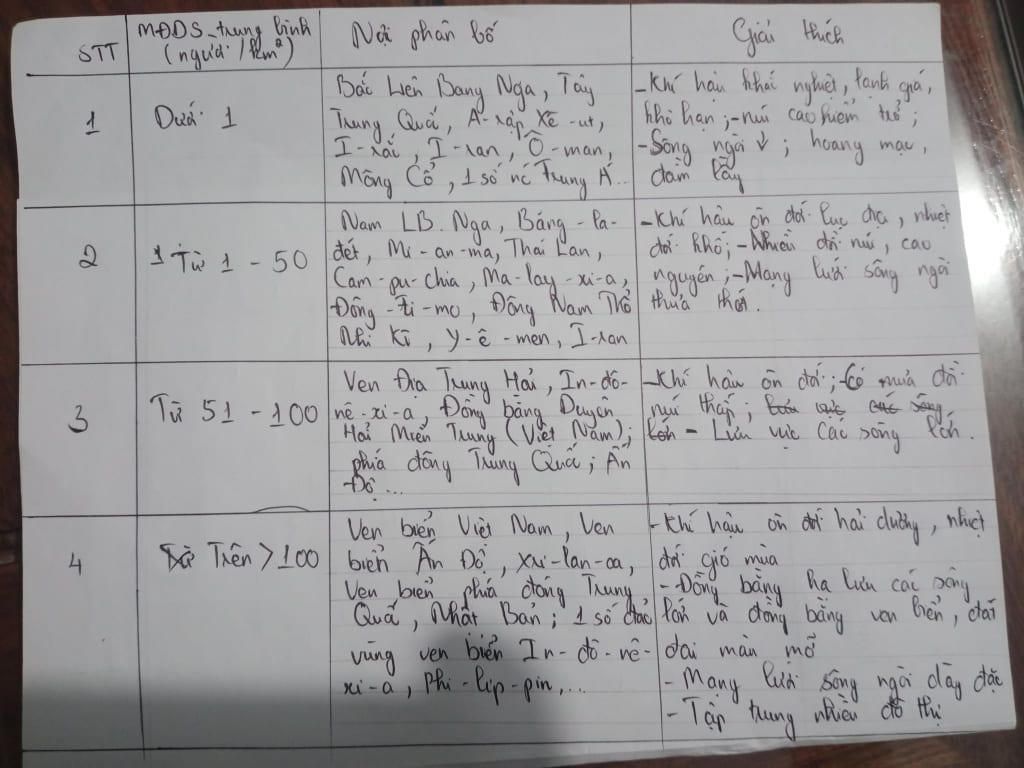 STT
MĐDS_trung bình
(người/km²)
Nơi phân bố
Giải thích
1
Dưới 1
Bắc Liên Bang Nga, Tây
Trung Quốc, A-rập Xê-ut,
I-rắc, I-ran, Ô-man,
Mông Cổ, 1 số nc Trung Á...
-Khí hậu khắc nghiệt, lạnh giá,
khô hạn; -núi cao hiểm trở;
-Sông ngòi ↓; hoang mạc,
đầm lầy
2
Từ 1 - 50
Nam LB. Nga, Băng-la-
đét, Mi-an-ma, Thái Lan,
Cam-pu-chia, Ma-lay-xi-a,
Đông-Ti-mo, Đông Nam Thổ
Nhĩ Kì, Y-ê-men, I-ran
-Khí hậu ôn đới lục địa, nhiệt
đới khô; -Nhiều đồi núi, cao
nguyên; -Mạng lưới sông ngòi
thưa thớt.
3
Từ 51 - 100
Ven Địa Trung Hải, In-đô-
nê-xi-a, Đồng bằng Duyên
Hải Miền Trung (Việt Nam);
phía đông Trung Quốc; Ấn
Độ...
-Khí hậu ôn đới; -Có mưa đồi
núi thấp; lưu vực các sông
lớn - Lưu vực các sông lớn.
4
Trên >100
Ven biển Việt Nam, Ven
biển Ấn Độ, Xri-lan-ca,
Ven biển phía đông Trung
Quốc, Nhật Bản; 1 số đảo
vùng ven biển In-đô-nê-
xi-a, Phi-lip-pin,...
-Khí hậu ôn đới hải dương, nhiệt
đới gió mùa
-Đồng bằng hạ lưu các sông
lớn và đồng bằng ven biển, đất
đai màu mỡ
- Mạng lưới sông ngòi dày đặc
- Tập trung nhiều đô thị